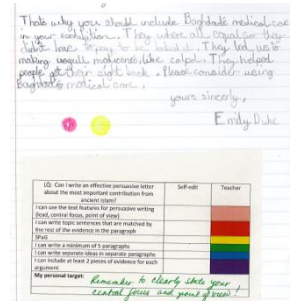 Thats why you should include Baghdads medical care
in your exhibition. They where all equal for they
didnt have to pay to be. They led us to
making medicenes like calpol. They helped
people get their sight back. Please consider using
Baghdads medical care.
yours sincerely,
Emily Duke
LQ: Can I write an effective persuasive letter
about the most important contribution from
ancient Islam?
Self-edit
Teacher
I can use the text features for persuasive writing
(lead, central focus, point of view)
I can write topic sentences that are matched by
the rest of the evidence in the paragraph
SPaG
I can write a minimum of 5 paragraphs
I can write separate ideas in separate paragraphs
I can include at least 2 pieces of evidence for each
argument
My personal target:
Remember to clearly state your
central focus and point of view!